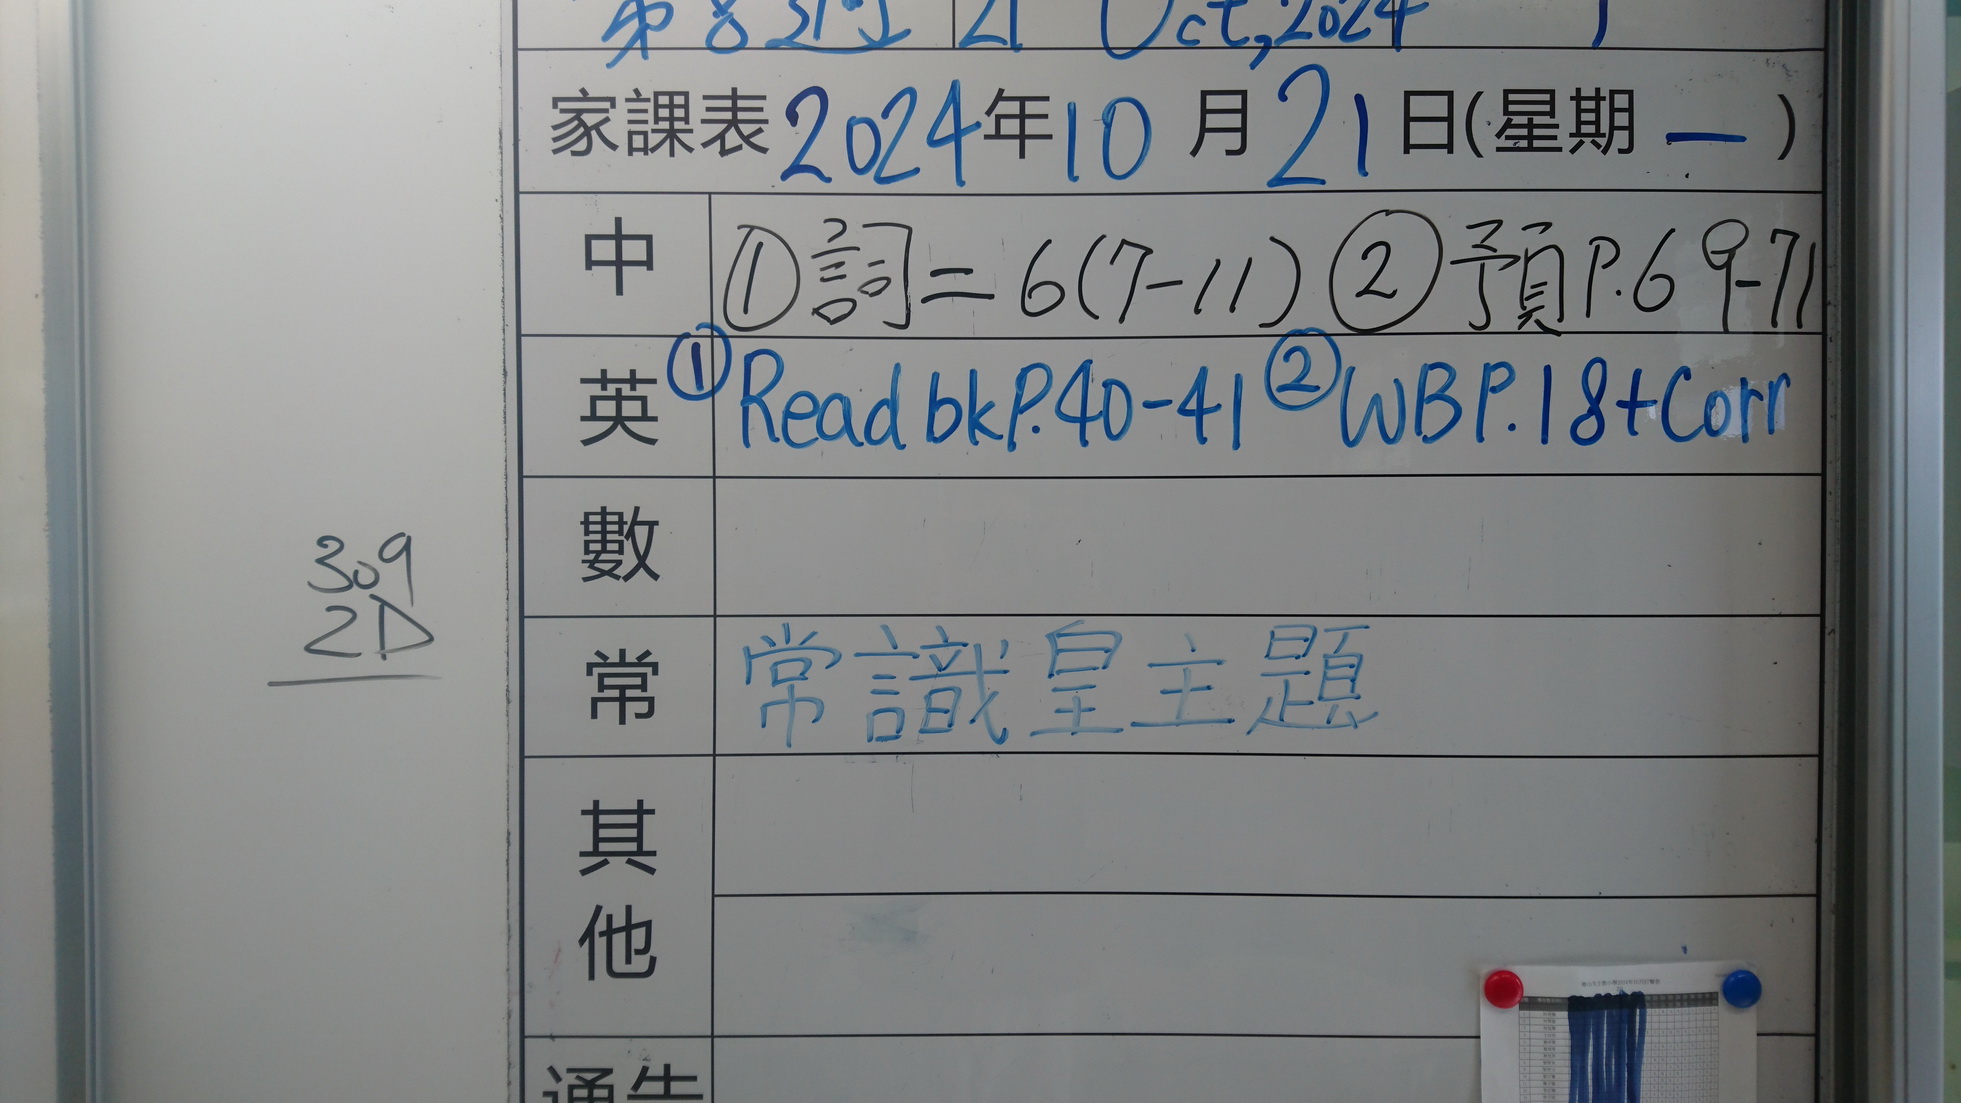 第8週 21 Oct, 2024
家課表 2024年10月21日(星期一)
中 ①詞=6(7-11) ②預P.69-71
英 ①Read bk P.40-41 ②WB P.18+Corr
數
309
2D
常 常識皇主題
其他
通告